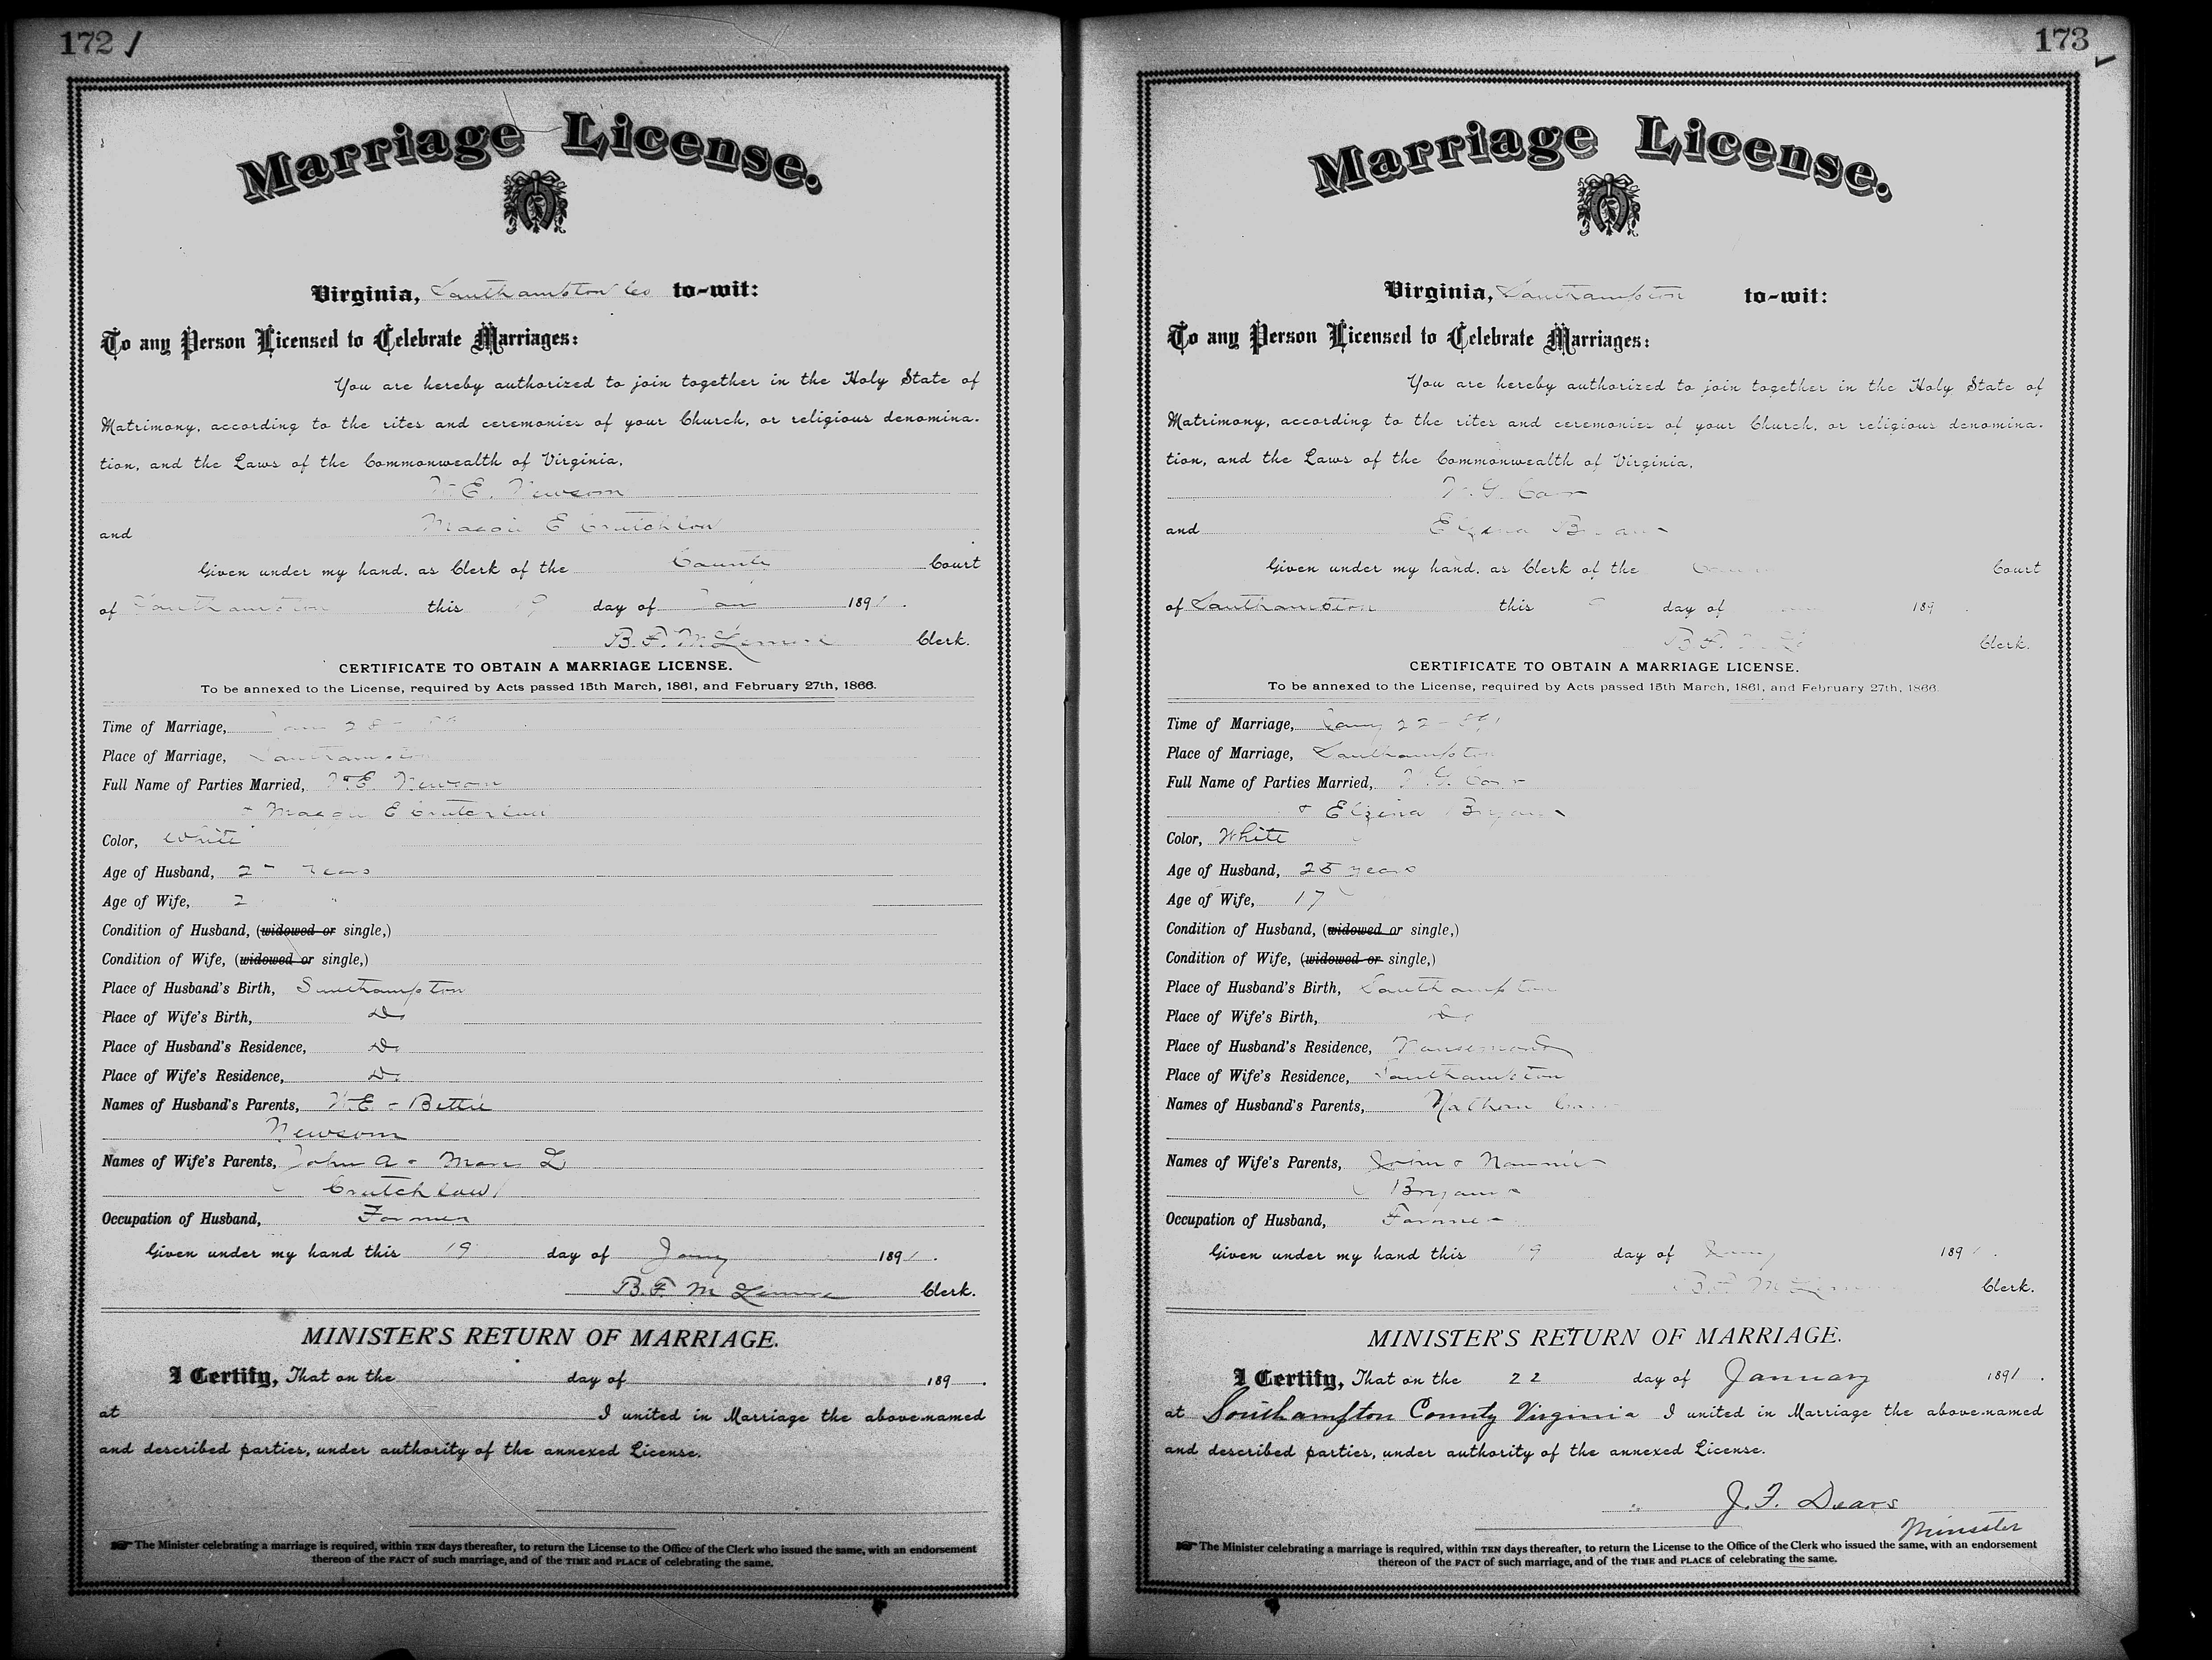 172
Marriage License.
Virginia, Southampton Co to-wit:
To any Person Licensed to Celebrate Marriages:
You are hereby authorized to join together in the Holy State of
Matrimony, according to the rites and ceremonies of your Church, or religious denomina-
tion, and the Laws of the Commonwealth of Virginia,
W.E. Newsom
and Maggie E Crutchlow
Given under my hand, as Clerk of the County Court
of Southampton this 19 day of Jan 1891.
B.F. McLemore Clerk.
CERTIFICATE TO OBTAIN A MARRIAGE LICENSE.
To be annexed to the License, required by Acts passed 15th March, 1861, and February 27th, 1866.
Time of Marriage, Jany 28
Place of Marriage, Southampton
Full Name of Parties Married, W.E. Newsom
& Maggie E Crutchlow
Color, White
Age of Husband, years
Age of Wife,
Condition of Husband, (widowed or single,)
Condition of Wife, (widowed or single,)
Place of Husband's Birth, Southampton
Place of Wife's Birth, Do
Place of Husband's Residence, Do
Place of Wife's Residence, Do
Names of Husband's Parents, W.E. & Bettie
Newsom
Names of Wife's Parents, John A & Mary L
Crutchlow
Occupation of Husband, Farmer
Given under my hand this 19 day of Jany 1891.
B.F. McLemore Clerk.
MINISTER'S RETURN OF MARRIAGE.
I Certify, That on the day of 189 .
at I united in Marriage the above-named
and described parties, under authority of the annexed License.
The Minister celebrating a marriage is required, within TEN days thereafter, to return the License to the Office of the Clerk who issued the same, with an endorsement
thereof of the FACT of such marriage, and of the TIME and PLACE of celebrating the same.
173
Marriage License.
Virginia, Southampton to-wit:
To any Person Licensed to Celebrate Marriages:
You are hereby authorized to join together in the Holy State of
Matrimony, according to the rites and ceremonies of your Church, or religious denomina-
tion, and the Laws of the Commonwealth of Virginia,
W.G. Carr
and Elzina Bryant
Given under my hand, as Clerk of the Court
of Southampton this day of 189 .
B.F. Clerk.
CERTIFICATE TO OBTAIN A MARRIAGE LICENSE.
To be annexed to the License, required by Acts passed 15th March, 1861, and February 27th, 1866.
Time of Marriage, Jany 22 - 891
Place of Marriage, Southampton
Full Name of Parties Married, W.G. Carr
& Elzina Bryant
Color, White
Age of Husband, 25 years
Age of Wife, 17
Condition of Husband, (widowed or single,)
Condition of Wife, (widowed or single,)
Place of Husband's Birth, Southampton
Place of Wife's Birth, Do
Place of Husband's Residence, Nansemond
Place of Wife's Residence, Southampton
Names of Husband's Parents, Nathan Carr
Names of Wife's Parents, John & Nannie
Bryant
Occupation of Husband, Farmer
Given under my hand this 19 day of Jany 1891.
B.F. McLemore Clerk.
MINISTER'S RETURN OF MARRIAGE.
I Certify, That on the 22 day of January 1891.
at Southampton County Virginia I united in Marriage the above-named
and described parties, under authority of the annexed License.
J.F. Dears
Minister
The Minister celebrating a marriage is required, within TEN days thereafter, to return the License to the Office of the Clerk who issued the same, with an endorsement
thereof of the FACT of such marriage, and of the TIME and PLACE of celebrating the same.